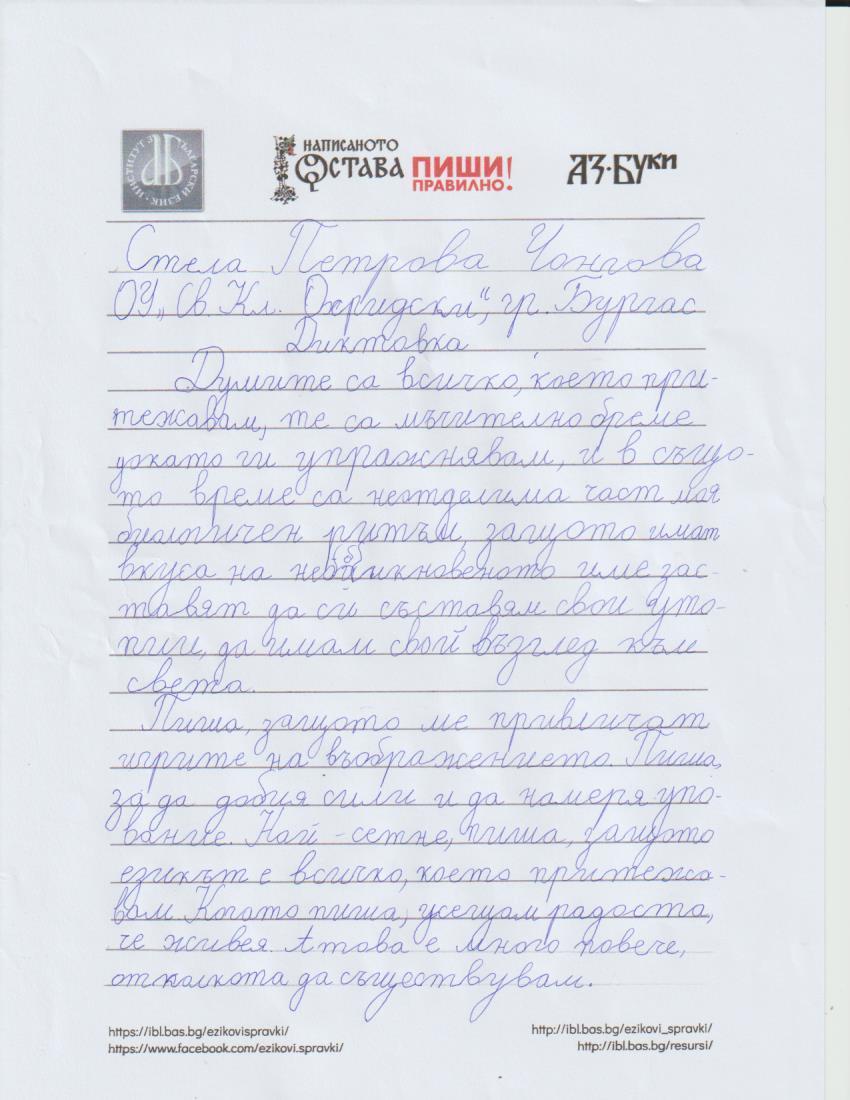 ИНСТИТУТ ЗА БЪЛГАРСКИ ЕЗИК
НАПИСАНОТО
ОСТАВА ПИШИ
ПРАВИЛНО!
АЗ·БУКИ
Стела Петрова Чонгова
ОУ „Св. Кл. Охридски“, гр. Бургас
Диктовка
Думите са всичко, което при-
тежавам, те са мъчително бреме
докато ги упражнявам, и в също-
то време са неотделима част моя
биологичен ритъм, защото имат
вкуса на необикновеното име зас-
тавят да си съставям свои уто-
пии, да имам свой възглед към
света.
Пиша, защото ме привличат
игрите на въображението. Пиша,
за да добия сили и да намеря упо-
вание. Най-сетне, пиша, защото
езикът е всичко, което притежа-
вам. Когато пиша, усещам радоста,
че живея. А това е много повече,
отколкота да съществувам.
https://ibl.bas.bg/ezikovispravki/
https://www.facebook.com/ezikovi.spravki/
http://ibl.bas.bg/ezikovi_spravki/
http://ibl.bas.bg/resursi/